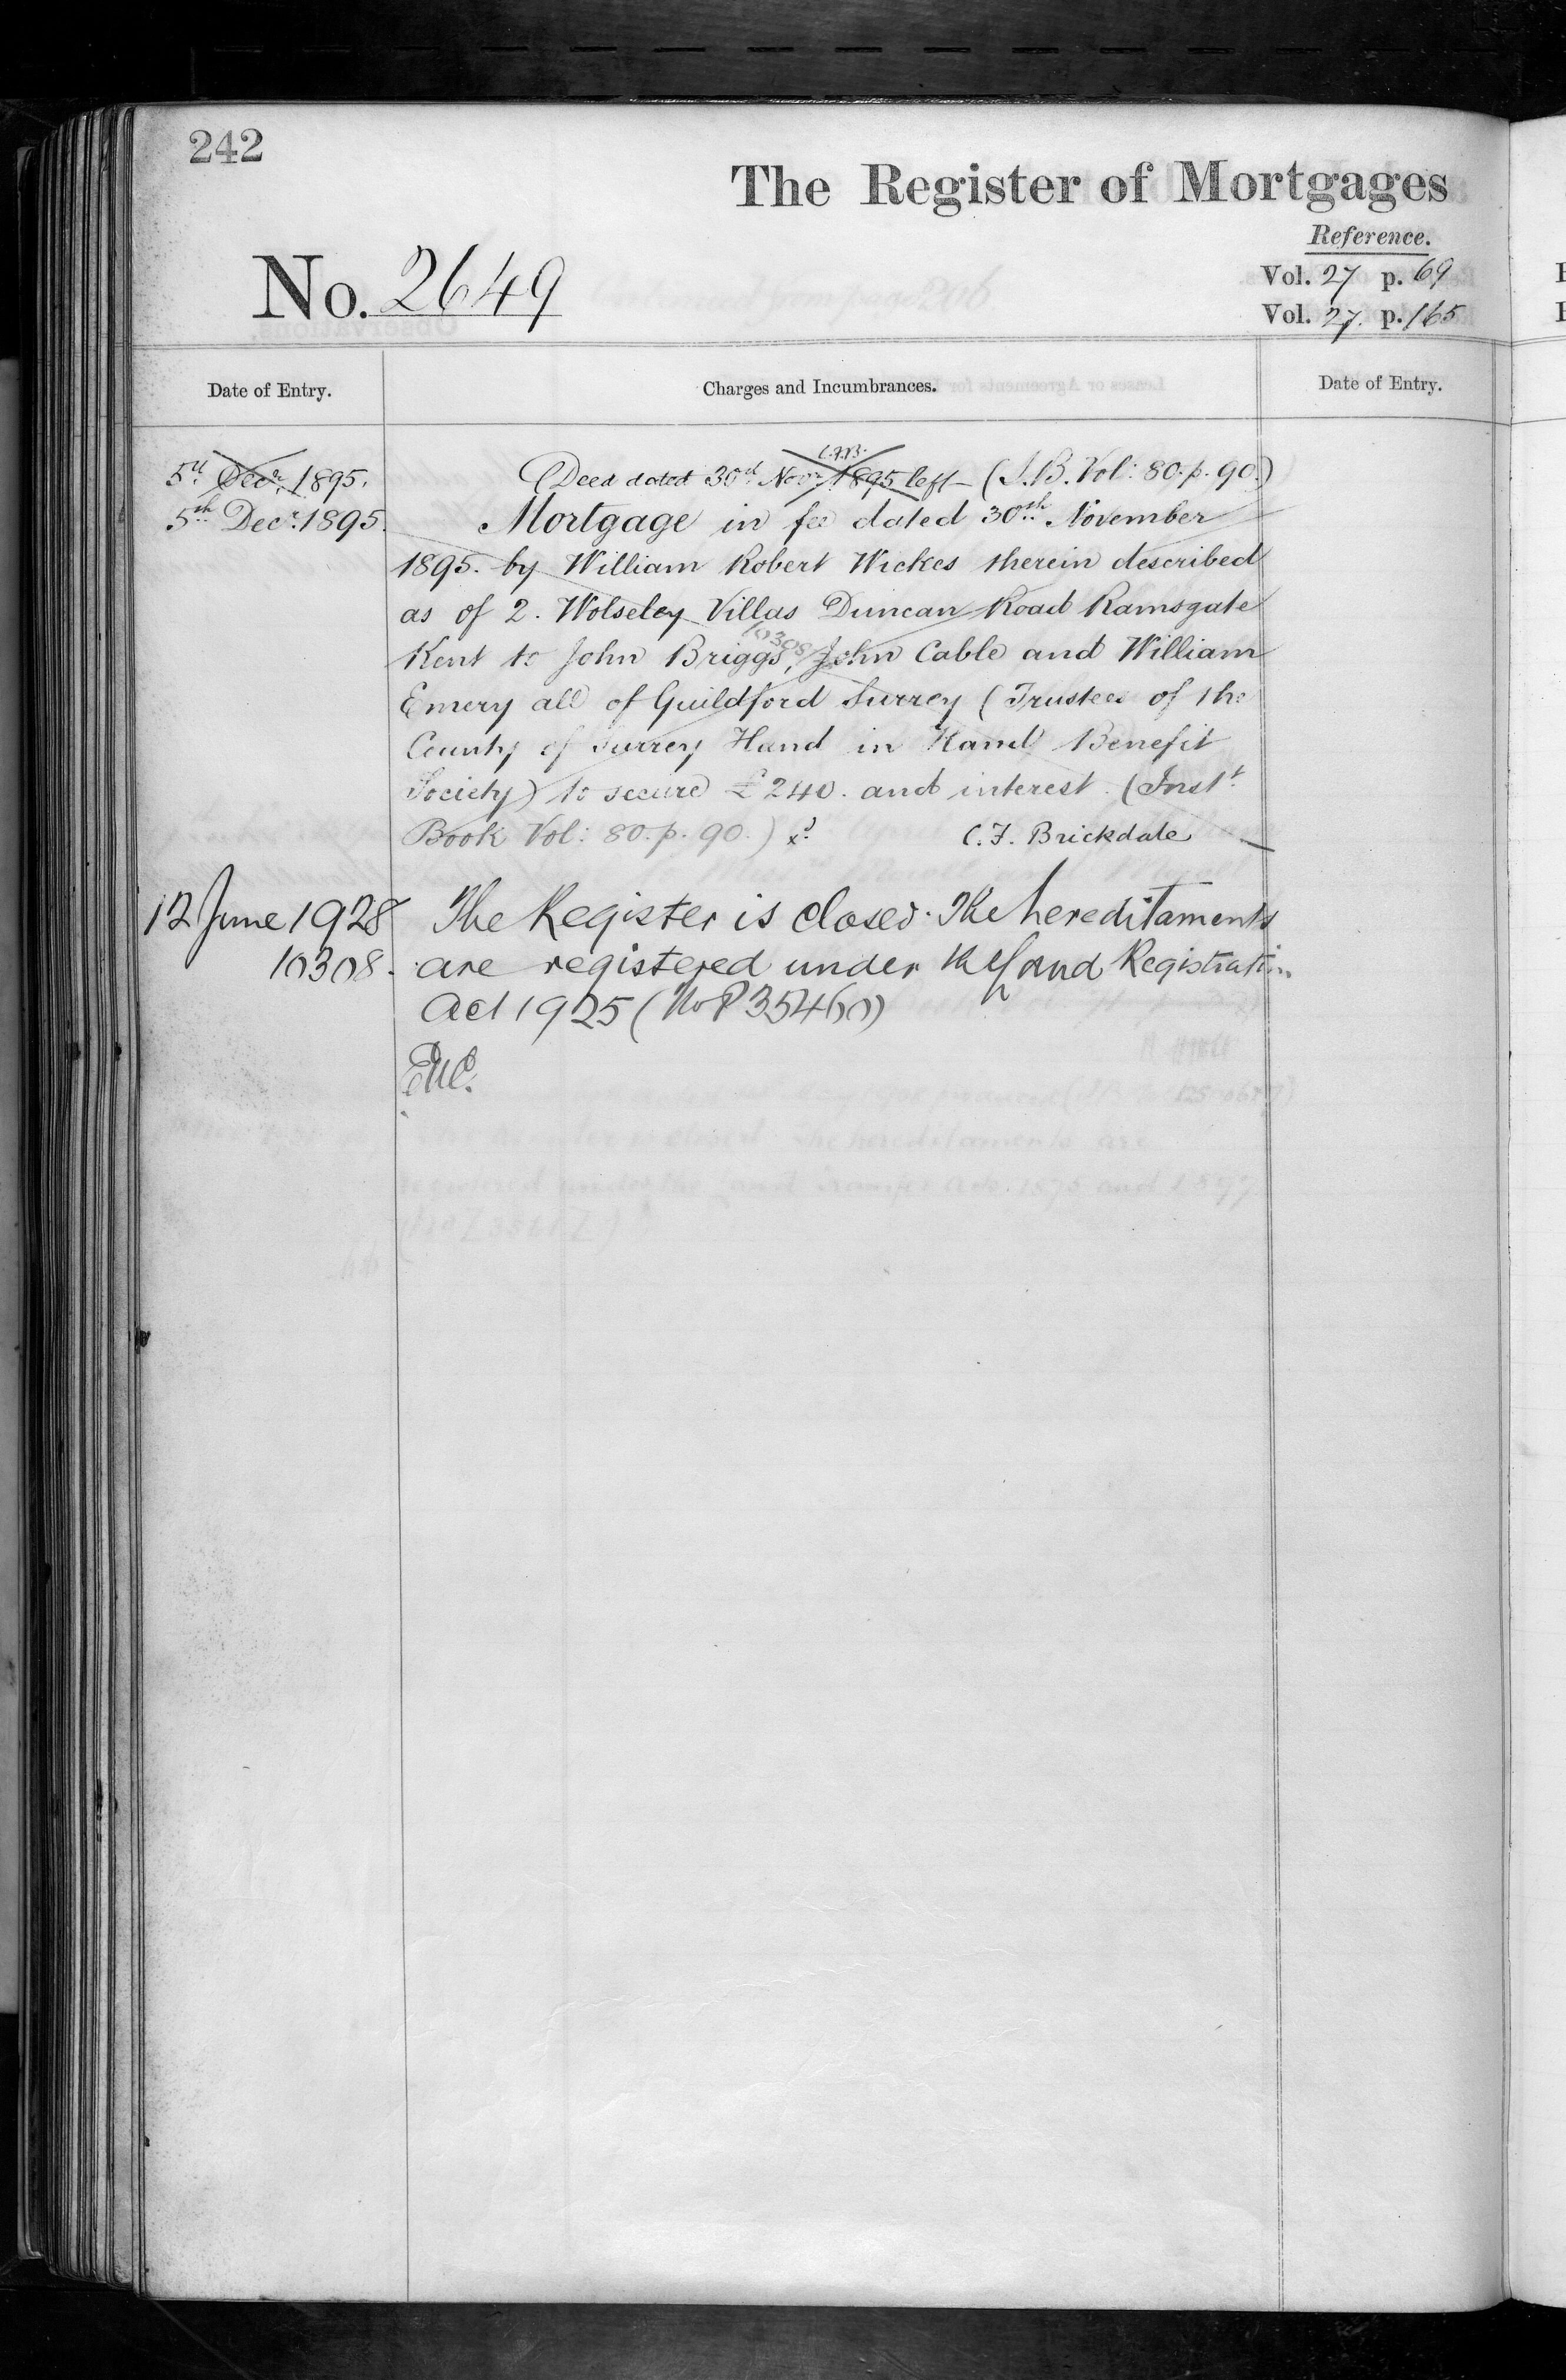 242
The Register of Mortgages
Reference.
No. 2649
Vol. 27 p. 69
Vol. 27. p. 165
Date of Entry.
Charges and Incumbrances.
Date of Entry.
C.F.B.
5th Decr. 1895.
Deed dated 30th Novr. 1895 left (I.B. Vol: 80. p. 90.)
5th Decr. 1895.
Mortgage in fee dated 30th November
1895. by William Robert Wickes therein described
as of 2. Wolseley Villas Duncan Road Ramsgate
10308
Kent to John Briggs, John Cable and William
Emery all of Guildford Surrey (Trustees of the
County of Surrey Hand in Hand Benefit
Society) to secure £240. and interest. (Inst.
Book Vol: 80. p. 90.)
C.F. Brickdale
12 June 1928
The Register is closed. The hereditaments
10308.
are registered under the Land Registration
Act 1925 (No P35460)